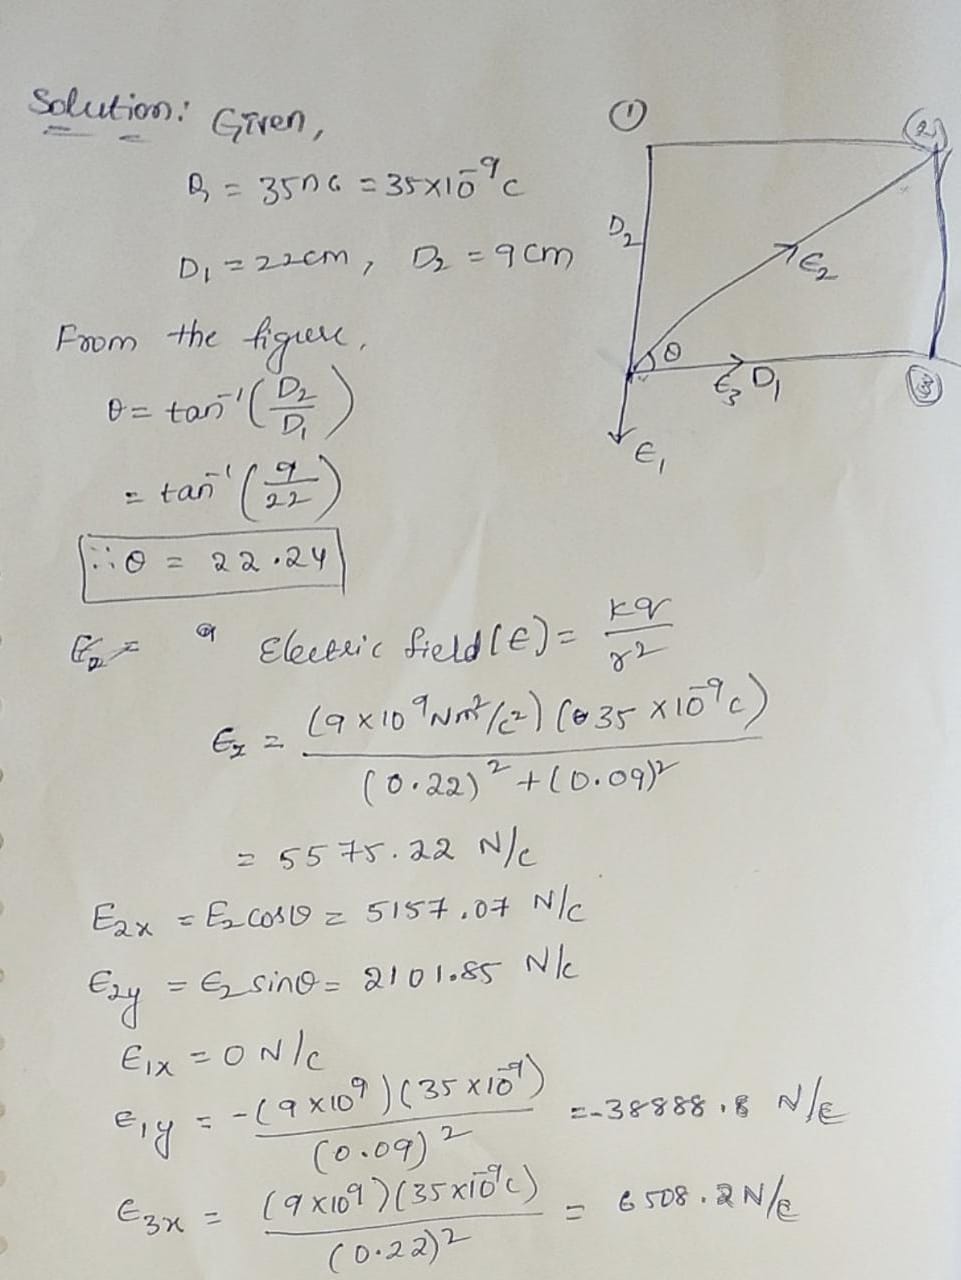 Solution: Given,
①
②
q = 35nC = 35×10⁻⁹C
D₁ = 22cm, D₂ = 9cm
D₂
E₂
From the figure,
θ
E₃ D₁
③
θ = tan⁻¹(D₂/D₁)
E₁
= tan⁻¹(9/22)
∴ θ = 22.24
Electric field (E) = kq/r²
E₂ = (9×10⁹Nm²/C²)(35×10⁻⁹C)/(0.22)²+(0.09)²
= 5575.22 N/C
E₂ₓ = E₂cosθ = 5157.07 N/C
E₂y = E₂sinθ = 2101.85 N/C
E₁ₓ = 0 N/C
E₁y = -(9×10⁹)(35×10⁻⁹)/(0.09)² = -38888.8 N/C
E₃ₓ = (9×10⁹)(35×10⁻⁹C)/(0.22)² = 6508.2 N/C